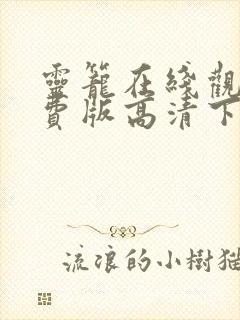 靈籠在綫觀
費版高清下
流浪的小樹猫